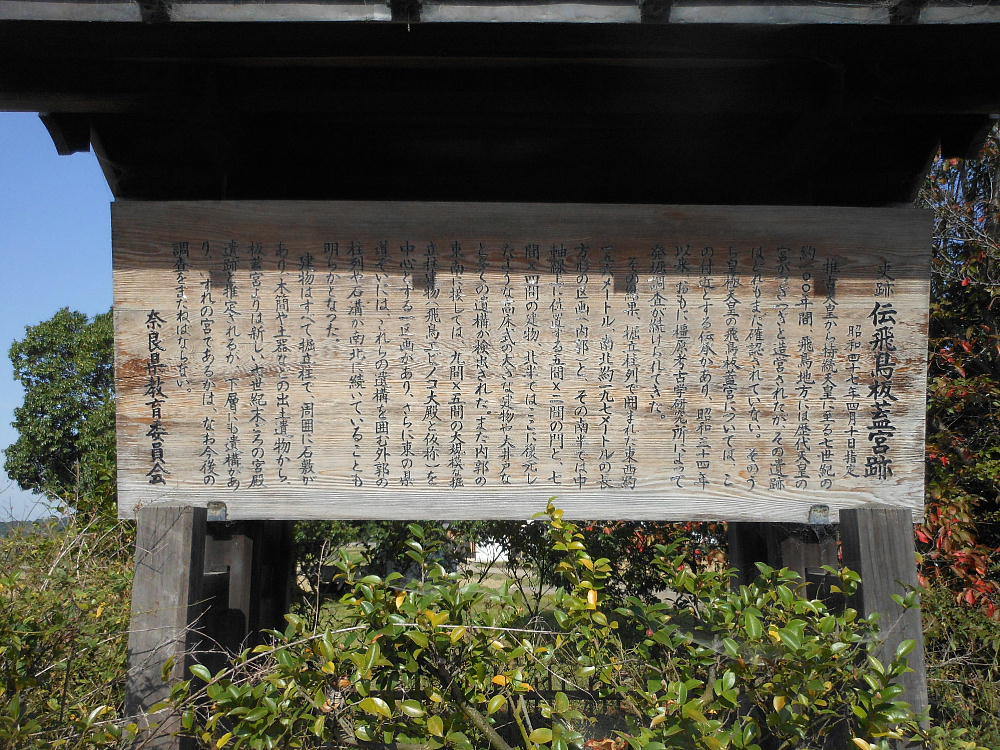 史跡 伝飛鳥板蓋宮跡
昭和四十七年四月十日指定
推古天皇から持統天皇に至る七世紀の
約一〇〇年間、飛鳥地方には歴代天皇の
宮がつぎつぎと造営されたが、その遺跡
はどれもまだ確認されていない。そのう
ち皇極天皇の飛鳥板蓋宮については、こ
の付近とする伝承があり、昭和三十四年
以来、おもに橿原考古学研究所によって
発掘調査が続けられてきた。
その結果、掘立柱列で囲まれた東西約
一五六メートル、南北約一九七メートルの長
方形の区画(内郭)と、その南半では中
軸線上に位置する五間×二間の門と、七
間×四間の建物、北半ではここに復元し
たような高床式の大きな建物や大井戸な
ど多くの遺構が検出された。また内郭の
東南に接しては、九間×五間の大規模な掘
立柱建物(飛鳥エビノコ大殿と仮称)を
中心とする一区画があり、さらに東の県
道ぞいには、これらの遺構を囲む外郭の
柱列や石溝が南北に続いていることも
明らかとなった。
建物はすべて掘立柱で、周囲に石敷が
あり、木簡や土器などの出土遺物から、
板蓋宮よりは新しい七世紀末ころの宮殿
遺跡と推定されるが、下層にも遺構があ
り、いずれの宮であるかは、なお今後の
調査をまたねばならない。
奈良県教育委員会